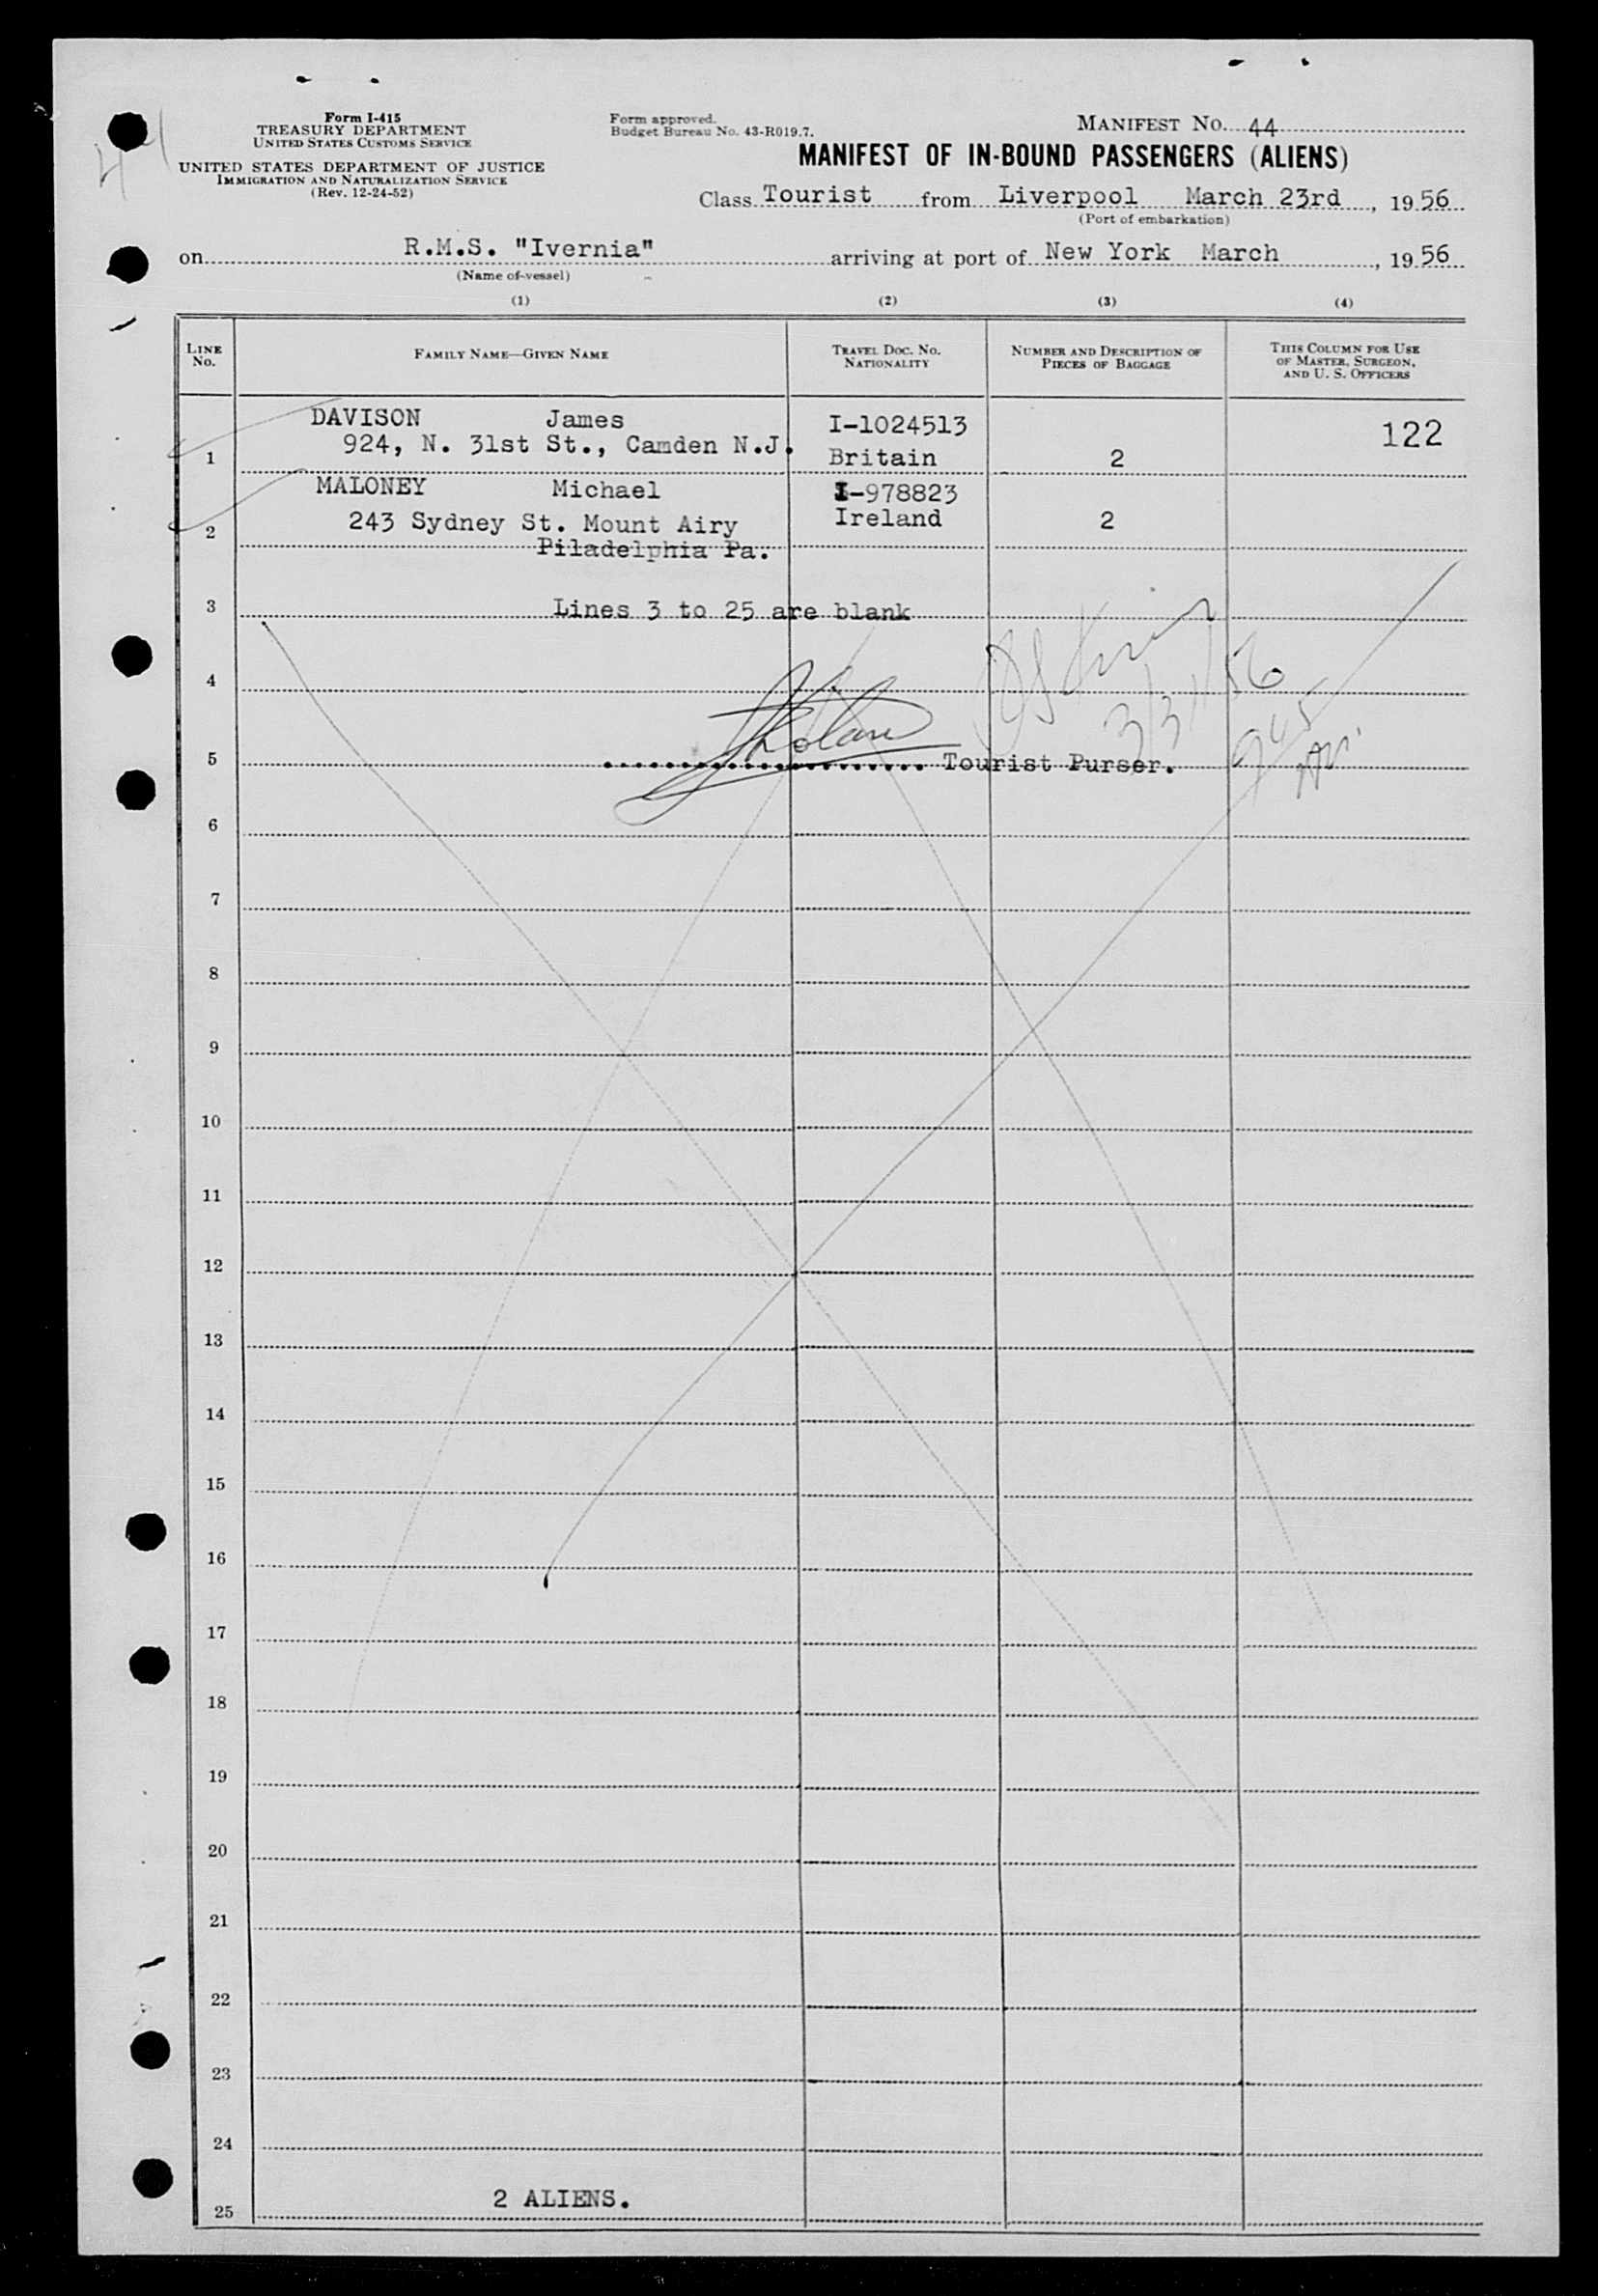 Form I-415
TREASURY DEPARTMENT
UNITED STATES CUSTOMS SERVICE
UNITED STATES DEPARTMENT OF JUSTICE
IMMIGRATION AND NATURALIZATION SERVICE
(Rev. 12-24-52)
Form approved.
Budget Bureau No. 43-R019.7.
MANIFEST No. 44
MANIFEST OF IN-BOUND PASSENGERS (ALIENS)
Class Tourist from Liverpool March 23rd, 1956
(Port of embarkation)
on R.M.S. "Ivernia" arriving at port of New York March, 1956
(Name of vessel)
(1) (2) (3) (4)
LINE No. FAMILY NAME—GIVEN NAME TRAVEL DOC. NO. NATIONALITY NUMBER AND DESCRIPTION OF PIECES OF BAGGAGE THIS COLUMN FOR USE OF MASTER, SURGEON, AND U. S. OFFICERS
DAVISON James I-1024513 122
924, N. 31st St., Camden N.J.
1 Britain 2
MALONEY Michael I-978823
243 Sydney St. Mount Airy Ireland 2
2
Piladelphia Pa.
3 Lines 3 to 25 are blank
4 3/31/56
945
5 Tourist Purser.
6
7
8
9
10
11
12
13
14
15
16
17
18
19
20
21
22
23
24
2 ALIENS.
25